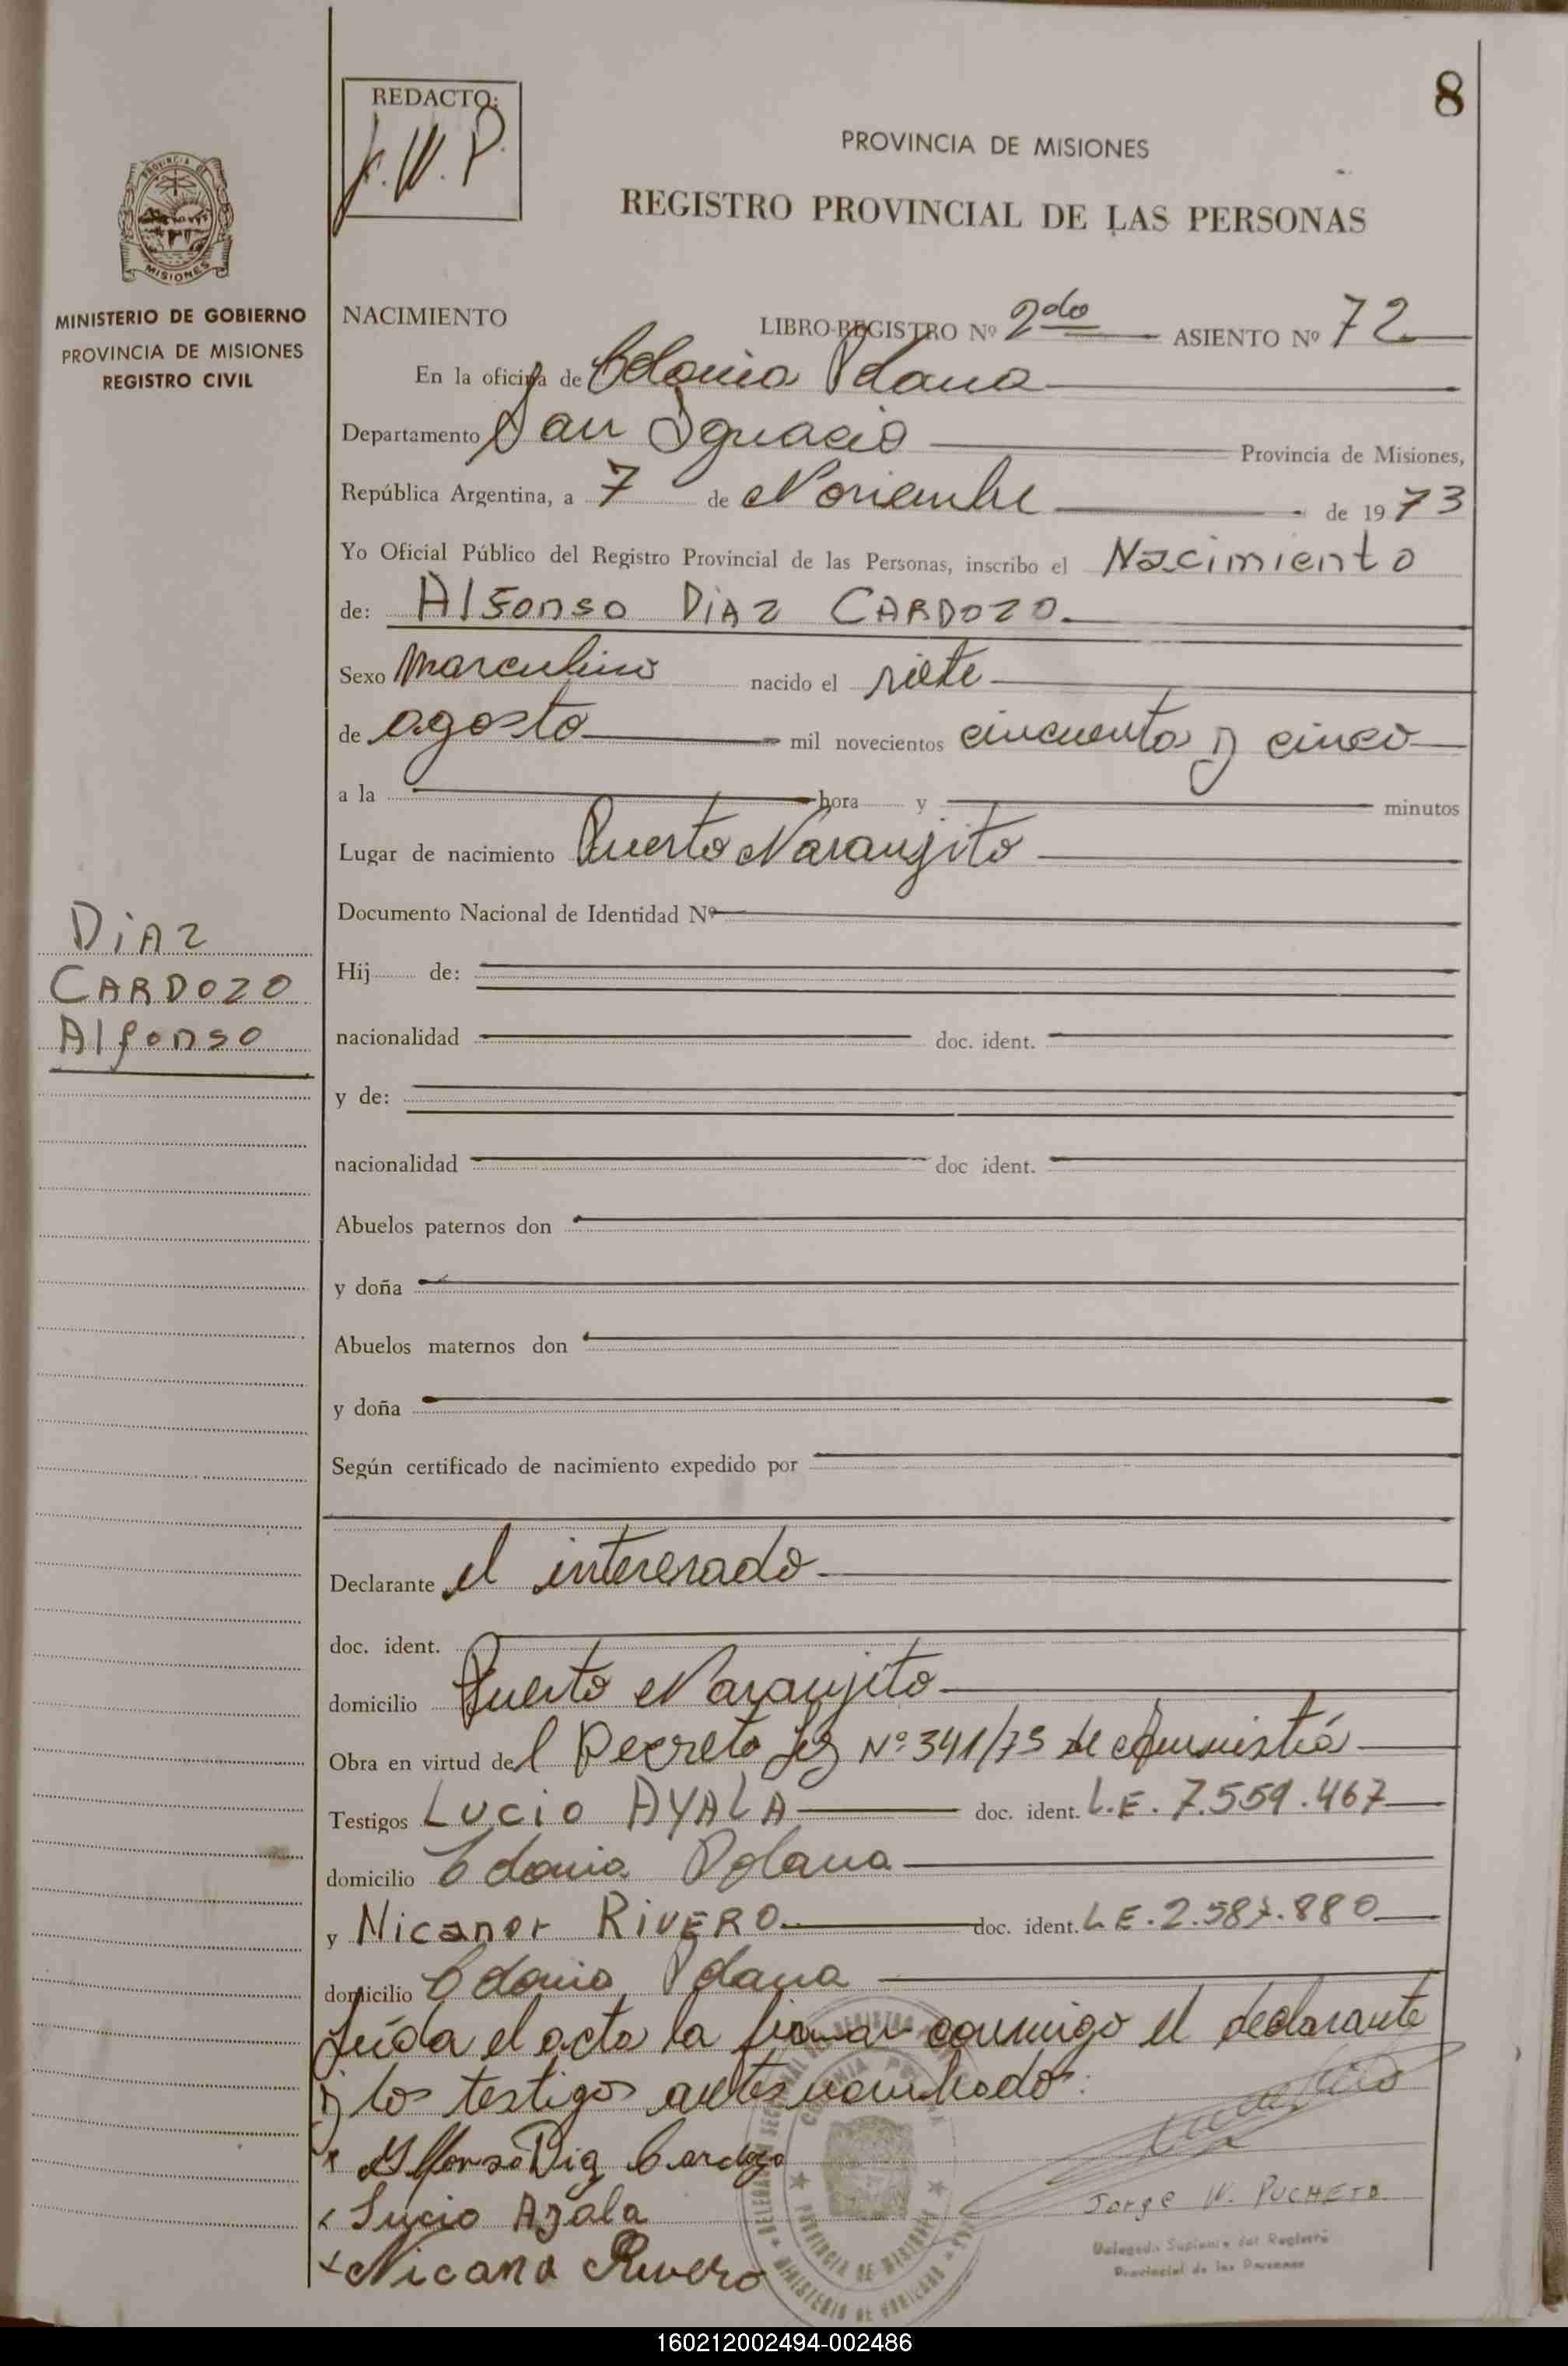 8
REDACTO:
J. W. P.
PROVINCIA DE MISIONES
REGISTRO PROVINCIAL DE LAS PERSONAS
PROVINCIA D
MISIONES
MINISTERIO DE GOBIERNO
PROVINCIA DE MISIONES
REGISTRO CIVIL
NACIMIENTO LIBRO-REGISTRO Nº 2do ASIENTO Nº 72
En la oficina de Colonia Polana
Departamento San Ignacio Provincia de Misiones,
República Argentina, a 7 de Noviembre de 1973
Yo Oficial Público del Registro Provincial de las Personas, inscribo el Nacimiento
de: Alfonso DIAZ CARDOZO.
Sexo Masculino nacido el siete
de agosto mil novecientos cincuenta y cinco
a la hora y minutos
Lugar de nacimiento Puerto Naranjito
Documento Nacional de Identidad Nº
DIAZ
CARDOZO
Alfonso
Hij de:
nacionalidad doc. ident.
y de:
nacionalidad doc ident.
Abuelos paternos don
y doña
Abuelos maternos don
y doña
Según certificado de nacimiento expedido por
Declarante el interesado
doc. ident.
domicilio Puerto Naranjito
Obra en virtud del Decreto Ley Nº 341/73 de Amnistía
Testigos Lucio AYALA doc. ident. L.E. 7.559.467
domicilio Colonia Polana
y Nicanor RIVERO doc. ident. L.E. 2.587.880
domicilio Colonia Polana
Leída el acta la firman conmigo el declarante
y los testigos antes nombrados:
x Alfonso Diaz Cardozo
x Lucio Ayala
x Nicano Rivero
Jorge W. PUCHETA
Delegado Suplente del Registro
Provincial de las Personas
COLONIA POLANA
PROVINCIA DE MISIONES
MINISTERIO DE GOBIERNO
160212002494-002486